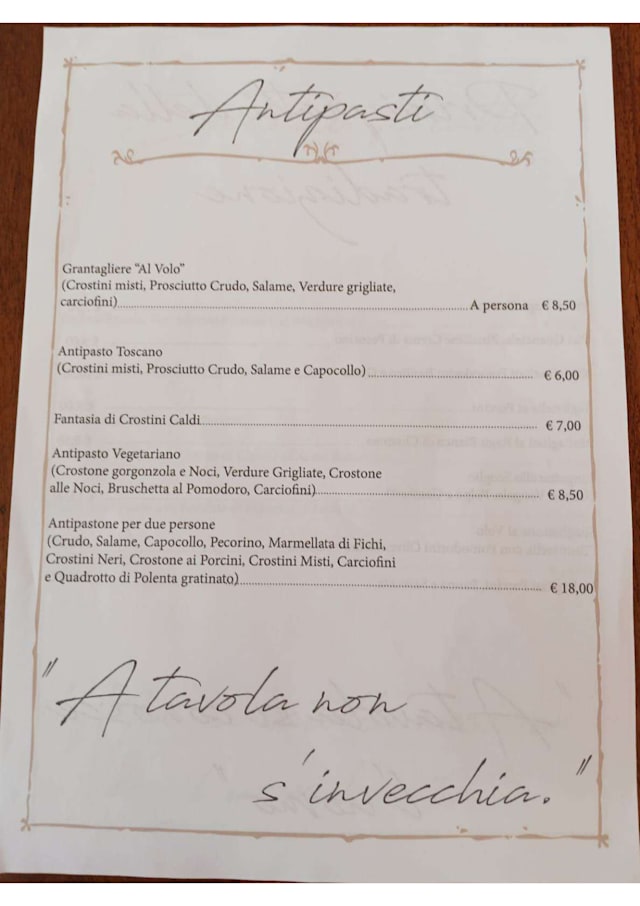 Antipasti
Grantagliere “Al Volo”
(Crostini misti, Prosciutto Crudo, Salame, Verdure grigliate,
carciofini)........A persona € 8,50
Antipasto Toscano
(Crostini misti, Prosciutto Crudo, Salame e Capocollo)........€ 6,00
Fantasia di Crostini Caldi........€ 7,00
Antipasto Vegetariano
(Crostone gorgonzola e Noci, Verdure Grigliate, Crostone
alle Noci, Bruschetta al Pomodoro, Carciofini)........€ 8,50
Antipastone per due persone
(Crudo, Salame, Capocollo, Pecorino, Marmellata di Fichi,
Crostini Neri, Crostone ai Porcini, Crostini Misti, Carciofini
e Quadrotto di Polenta gratinato)........€ 18,00
"A tavola non
s'invecchia."